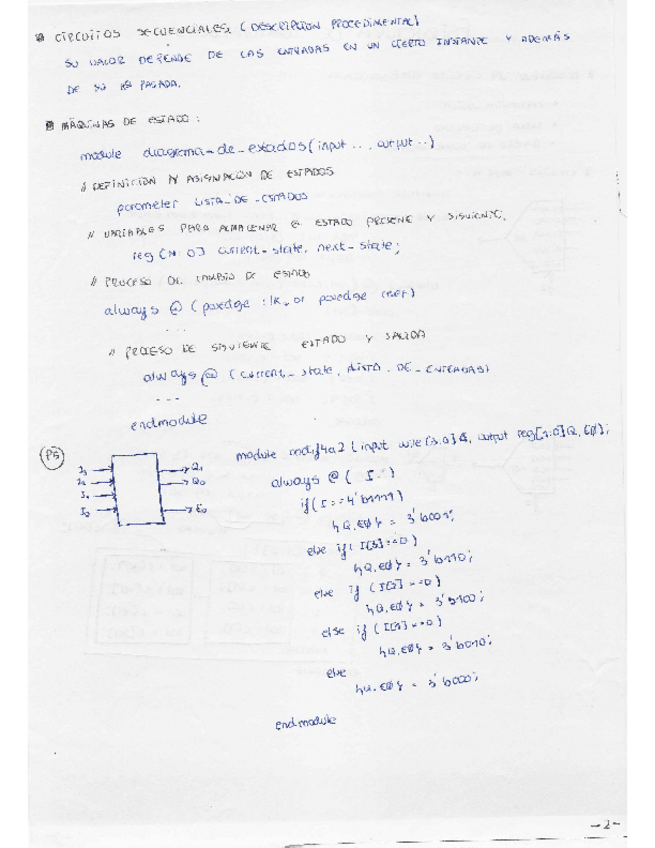 CIRCUITOS SECUENCIALES (DESCRIPCIÓN PROCEDIMENTAL)
SU VALOR DEPENDE DE LAS ENTRADAS EN UN CIERTO INSTANTE Y ADEMÁS
DE SU PASADA.
MÁQUINAS DE ESTADO:
module diagrama_de_estados (input ..., output ..)
// DEFINICIÓN Y ASIGNACIÓN DE ESTADOS
parameter LISTA_DE_ESTADOS
// VARIABLES PARA ALMACENAR EL ESTADO PRESENTE Y SIGUIENTE.
reg [N:0] current_state, next_state;
// PROCESO DE CAMBIO DE ESTADO
always @ (posedge clk, or posedge reset)
...
// PROCESO DE SIGUIENTE ESTADO Y SALIDA
always @ (current_state, LISTA_DE_ENTRADAS)
...
endmodule
P5
I3
I2
I1
I0
Q1
Q0
E0
module codif4a2 (input wire [3:0] I, output reg [1:0] Q, E0);
always @ (I)
if (I == 4'b1111)
{Q,E0} = 3'b001;
else if (I[3]==0)
{Q,E0} = 3'b110;
else if (I[2]==0)
{Q,E0} = 3'b100;
else if (I[1]==0)
{Q,E0} = 3'b010;
else
{Q,E0} = 3'b000;
endmodule
-2-